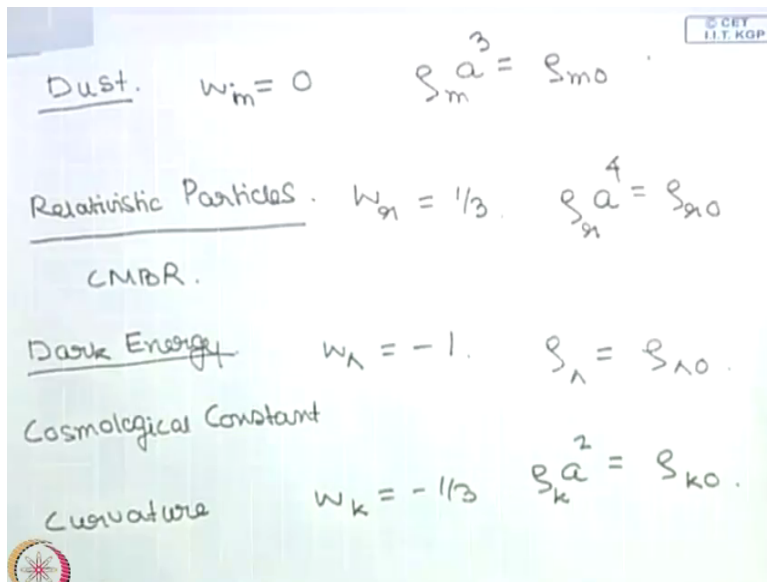 © CET
I.I.T. KGP
Dust. wₘ = 0 ρₘa³ = ρₘ₀
Relativistic Particles. wᵣ = 1/3. ρᵣa⁴ = ρᵣ₀
CMBR.
Dark Energy w_Λ = - 1. ρ_Λ = ρ_Λ₀.
Cosmological Constant
Curvature wₖ = - 1/3 ρₖa² = ρₖ₀.